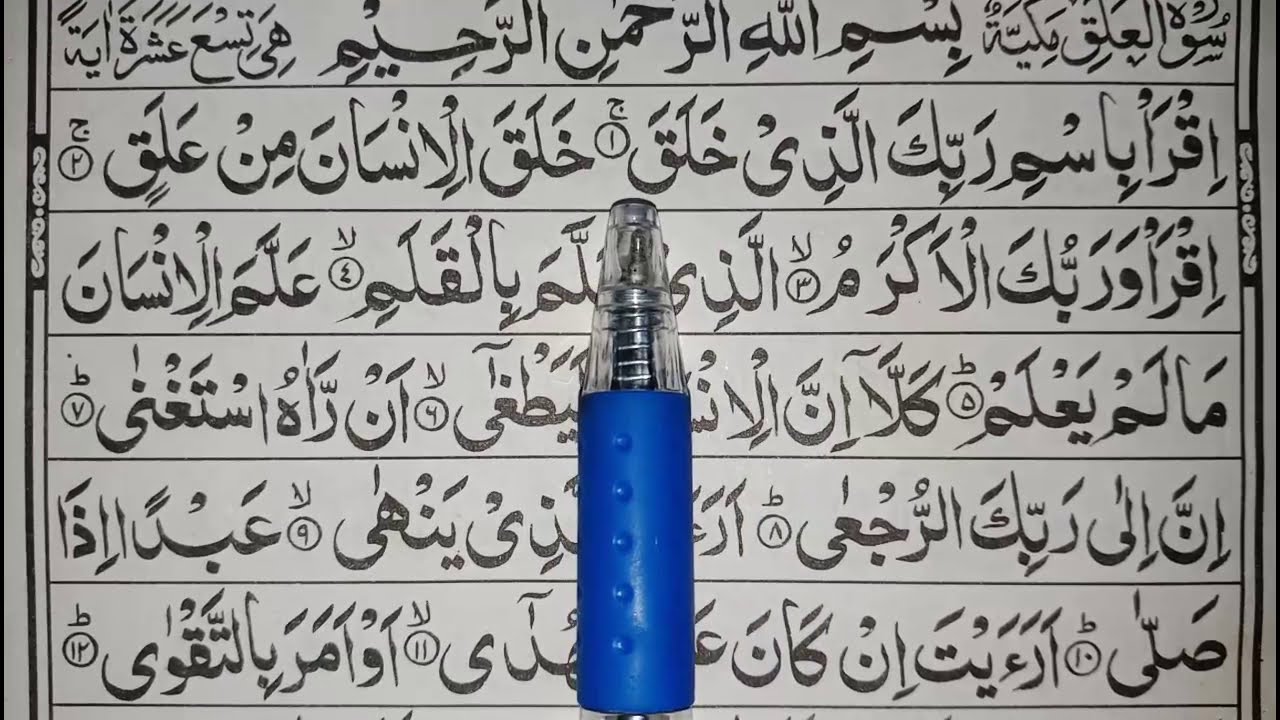 سُوْرَةُ الْعَلَقِ مَكِّيَّةٌ بِسْمِ اللهِ الرَّحْمٰنِ الرَّحِيْمِ هِيَ تِسْعَ عَشَرَةَ اٰيَةً
اِقْرَاْ بِاسْمِ رَبِّكَ الَّذِىْ خَلَقَ ۚ‏﴿۱﴾ خَلَقَ الْاِنْسَانَ مِنْ عَلَقٍ ۚ‏﴿۲﴾
اِقْرَاْ وَرَبُّكَ الْاَكْرَمُ ۙ‏﴿۳﴾ الَّذِىْ بِالْقَلَمِ ۙ‏﴿۴﴾ عَلَّمَ الْاِنْسَانَ
مَا لَمْ يَعْلَمْ ؕ‏﴿۵﴾ كَلَّاۤ اِنَّ ۙ‏﴿۶﴾ اَنْ رَّاٰهُ اسْتَغْنٰى ؕ‏﴿۷﴾
اِنَّ اِلٰى رَبِّكَ الرُّجْعٰى ؕ‏﴿۸﴾ يَنْهٰى ۙ‏﴿۹﴾ عَبْدًا اِذَا
صَلّٰى ؕ‏﴿۱۰﴾ اَرَءَيْتَ اِنْ كَانَ ۙ‏﴿۱۱﴾ اَوْ اَمَرَ بِالتَّقْوٰى ؕ‏﴿۱۲﴾